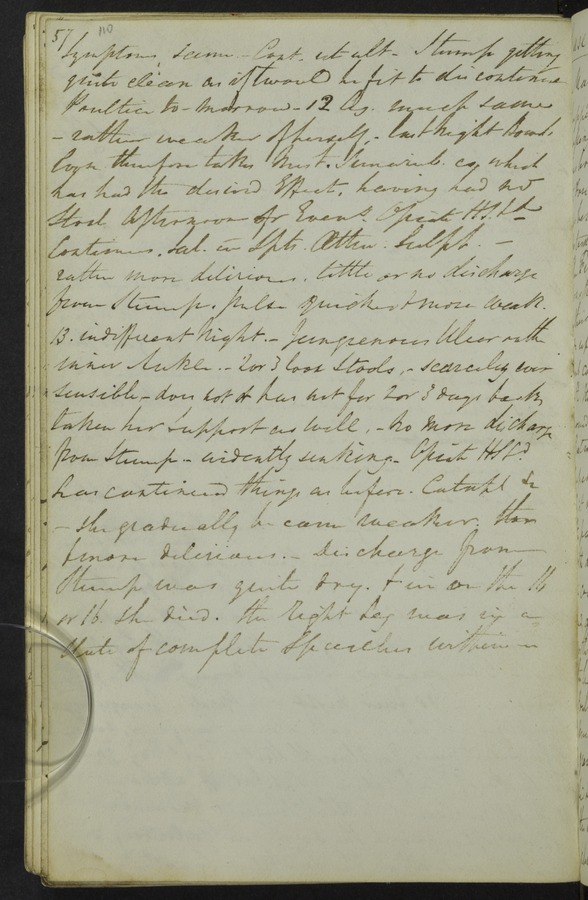 57 110
Symptoms same - Cont. ut ult - Stump getting
quite clean as if it would be fit to discontinue
Poultice to-morrow - 12 Og. much same
- rather weaker of herself, - last night Bowels
therefore takes Mist. which
has had the desired Effect, having had no
Stool. Afternoon or Eveng. Opiate HSSt
Continues. Sal. Sulph. -
rather more delirious, little or no discharge
from Stump. Pulse quicker & more weak.
13. indifferent Night. - Gangrenous Ulcer
inner Ankle. - 2 or 3 loose Stools, - scarcely ever
sensible - does not & has not for 2 or 3 days back
taken her Support as well, - no more discharge
from Stump - evidently sinking - Opiate HSSd.
has continued things as before. &c
- she gradually became weaker, then
& more delirious. - Discharge from
Stump was quite dry. & in or the 14
or 16 she died. the Right Leg was in a
State of complete